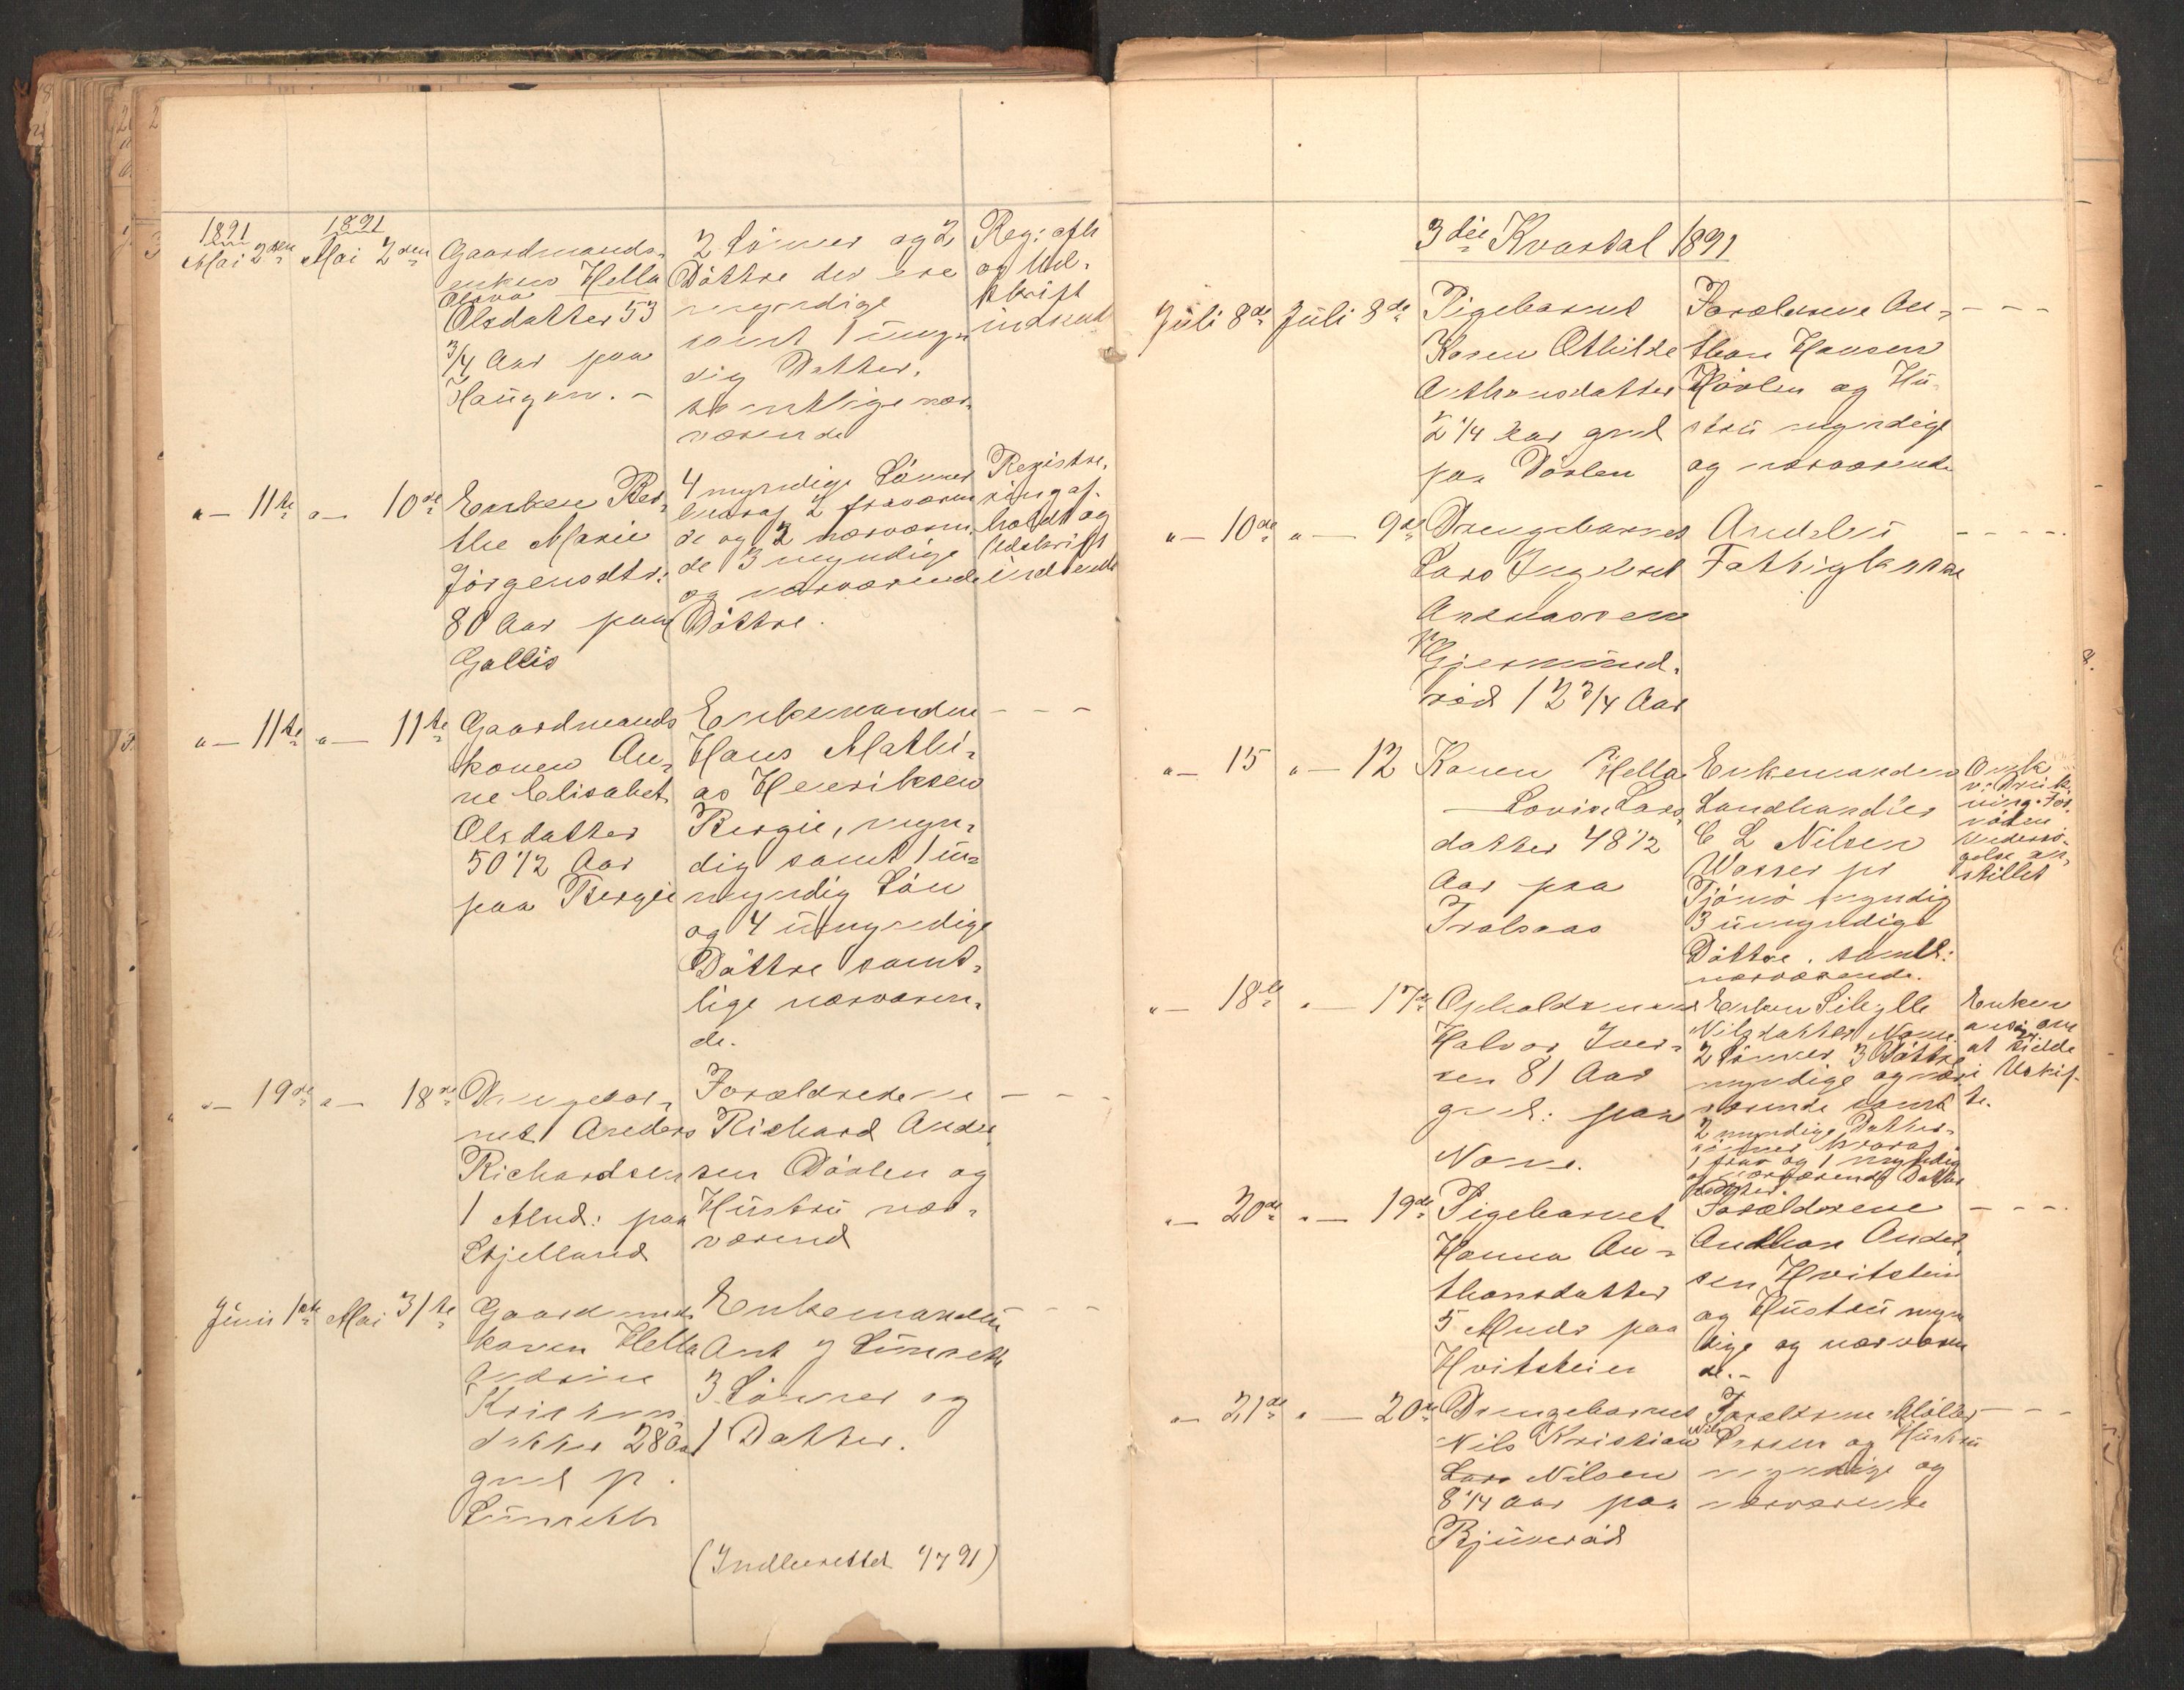 1891
1891
Mai 2den
Mai 2den
Gaardmands
enken Hella
Olava
Olsdatter 53
3/4 Aar paa
Haugen. -
2 Sönner og 2
Döttre der ere
myndige
samt 1 umyn
dig Datter,
samtlige nær-
værende
Reg: afh
og Ud-
skrift
indsendt
"— 11te "— 10de
Enken Ber-
the Marie
Jörgensdtr:
80 Aar paa
Gallis
4 myndige Sönner
hvoraf 2 fraværen
de og 2 nærværen-
de 3 myndige
og nærværende
Döttre.
Registre-
ring af-
holdt og
Udskrift
indsendt
"— 11te "— 11te
Gaardmands
konen An-
ne Elisabet
Olsdatter
50 1/2 Aar
paa Bergie
Enkemanden - - -
Hans Mathi-
as Henriksen
Bergie, myn-
dig samt 1 u-
myndig Sön
og 4 umyndige
Döttre samt-
lige nærværen-
de.
"— 19de "— 18de
Drengebar-
net Anders
Richardsen
1 Mnd: paa
Skjelland
Forældrederne - - -
Richard Ander
sen Dörlen og
Hustru nær-
værend
Juni 1ste Mai 31te
Gaardmands
konen Hella
Andrine
Kristens
datter 28 Aar
gml p.
Sunseth
Enkemanden - - -
Ant J Sunseth
3 Sönner og
1 Datter.
(Indberettet 1/7 91)
3die Kvartal 1891
Juli 8de Juli 8de
Pigebarnet
Karen Othilde
Anthonsdatter
2 1/4 Aar gml
paa Dörlen
Forældrene An- - - -
thon Hansen
Dörlen og Hu-
stru myndige
og nærværende
"— 10de "— 9de
Drengebarnet
Lars Ingebret
Andreassen
Gjermund-
röd 12 3/4 Aar
Andebu - - - -
Fattigkasse
"— 15 "— 12
Karen Hella
Lovise Lars
datter 48 1/2
Aar paa
Trolsaas
Enkemanden
Landhandler
C L Nilsen
Wasser pr
Tjömö myndig
3 umyndige
Döttre. samtl:
nærværende.
Omk
v: Druk
ning. For
nöden
Undersö-
gelse an-
stillet
"— 18de "— 17de
Opholdsmand
Halvor Iver-
sen 81 Aar
gml: paa
Nome.
Enken Sibylle
Nilsdatter Nome
2 Sönner 3 Döttre
myndige og nær
værende samt
2 myndige Datter-
sönner hvoraf
1 frav og 1 myndig
og nærværende Datter
datter.
Enken
ansöge om
at sidde
i Uskif-
te.
"— 20de "— 19de
Pigebarnet
Hanna An-
thonsdatter
5 Mnds paa
Hvitstein
Forældrene - - - -
Anthon Ander
sen Hvitstein
og Hustru myn
dige og nærværen
de.-
"— 21de "— 20de
Drengebarnet
Nils Kristian
Lars Nilsen
8 1/4 Aar paa
Bjuneröd
Forældrene Möller - - -
Nils Larsen og Hustru
myndige og
nærværende